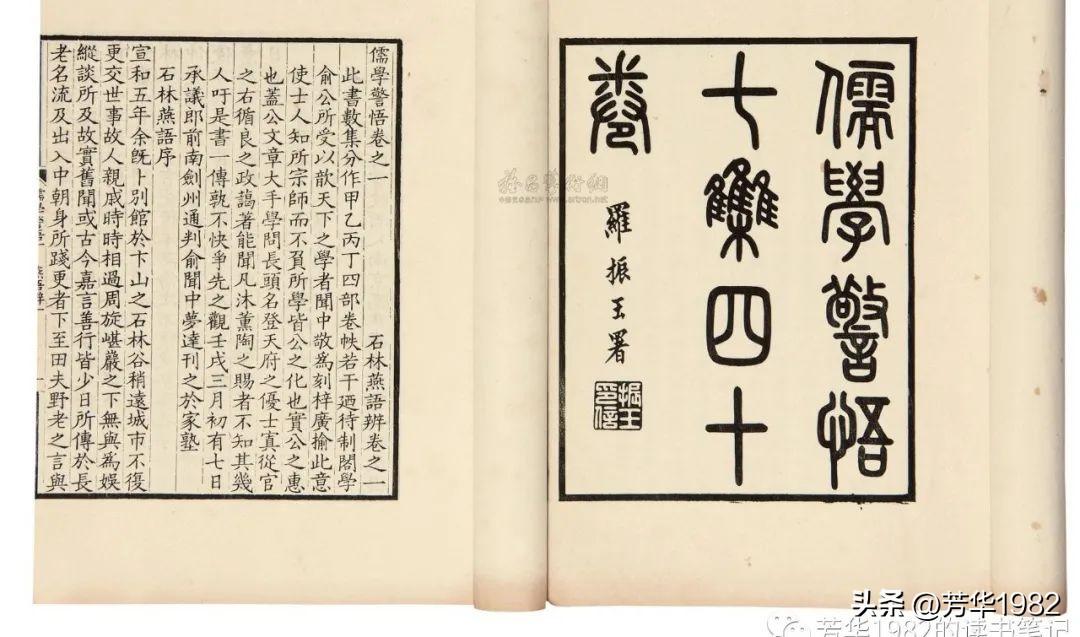 儒學警悟
七集四十
卷
羅振玉署
振玉印信
儒學警悟卷之一 石林燕語辨卷之一
此書數集分作甲乙丙丁四部卷帙若干廼待制閣學
俞公所受以歆天下之學者聞中敬為刻梓廣揄此意
使士人知所宗師而不負所學皆公之化也實公之惠
也蓋公文章大手學問長頭名登天府之優士真從官
之右循良之政譪著能聞凡沐薰陶之賜者不知其幾
人吁是書一傳孰不快爭先之觀壬戌三月初有七日
承議郎前南劍州通判俞聞中夢達刊之於家塾
石林燕語序
宣和五年余旣卜別館於卞山之石林谷稍遠城市不復
更交世事故人親戚時時相過周旋嵁巖之下無與為娛
縱談所及故實舊聞或古今嘉言善行皆少日所傳於長
老名流及出入中朝身所踐更者下至田夫野老之言與
www.artron.net
头条 @芳华1982
芳华1982的读书笔记